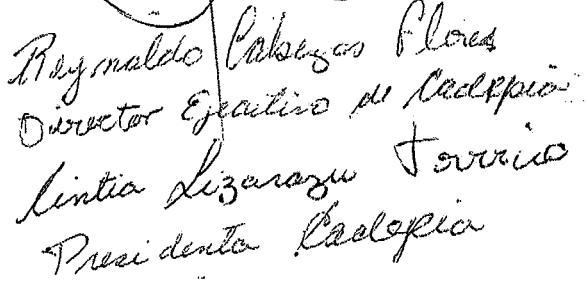 Reynaldo Cabezas Flores
Director Ejecutivo de Cadepia
Cintia Lizarazu Torrico
Presidenta Cadepia